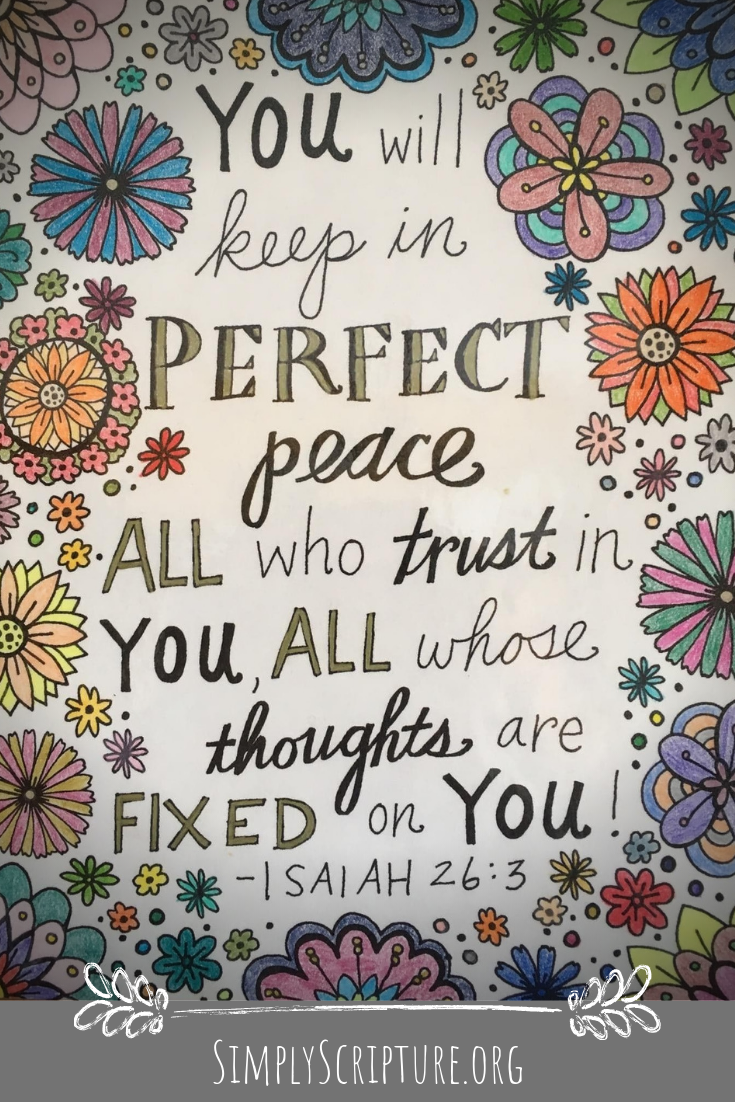 You will
keep in
PERFECT
peace
ALL who trust in
You, ALL whose
thoughts are
FIXED on You!
-ISAIAH 26:3
SimplyScripture.org